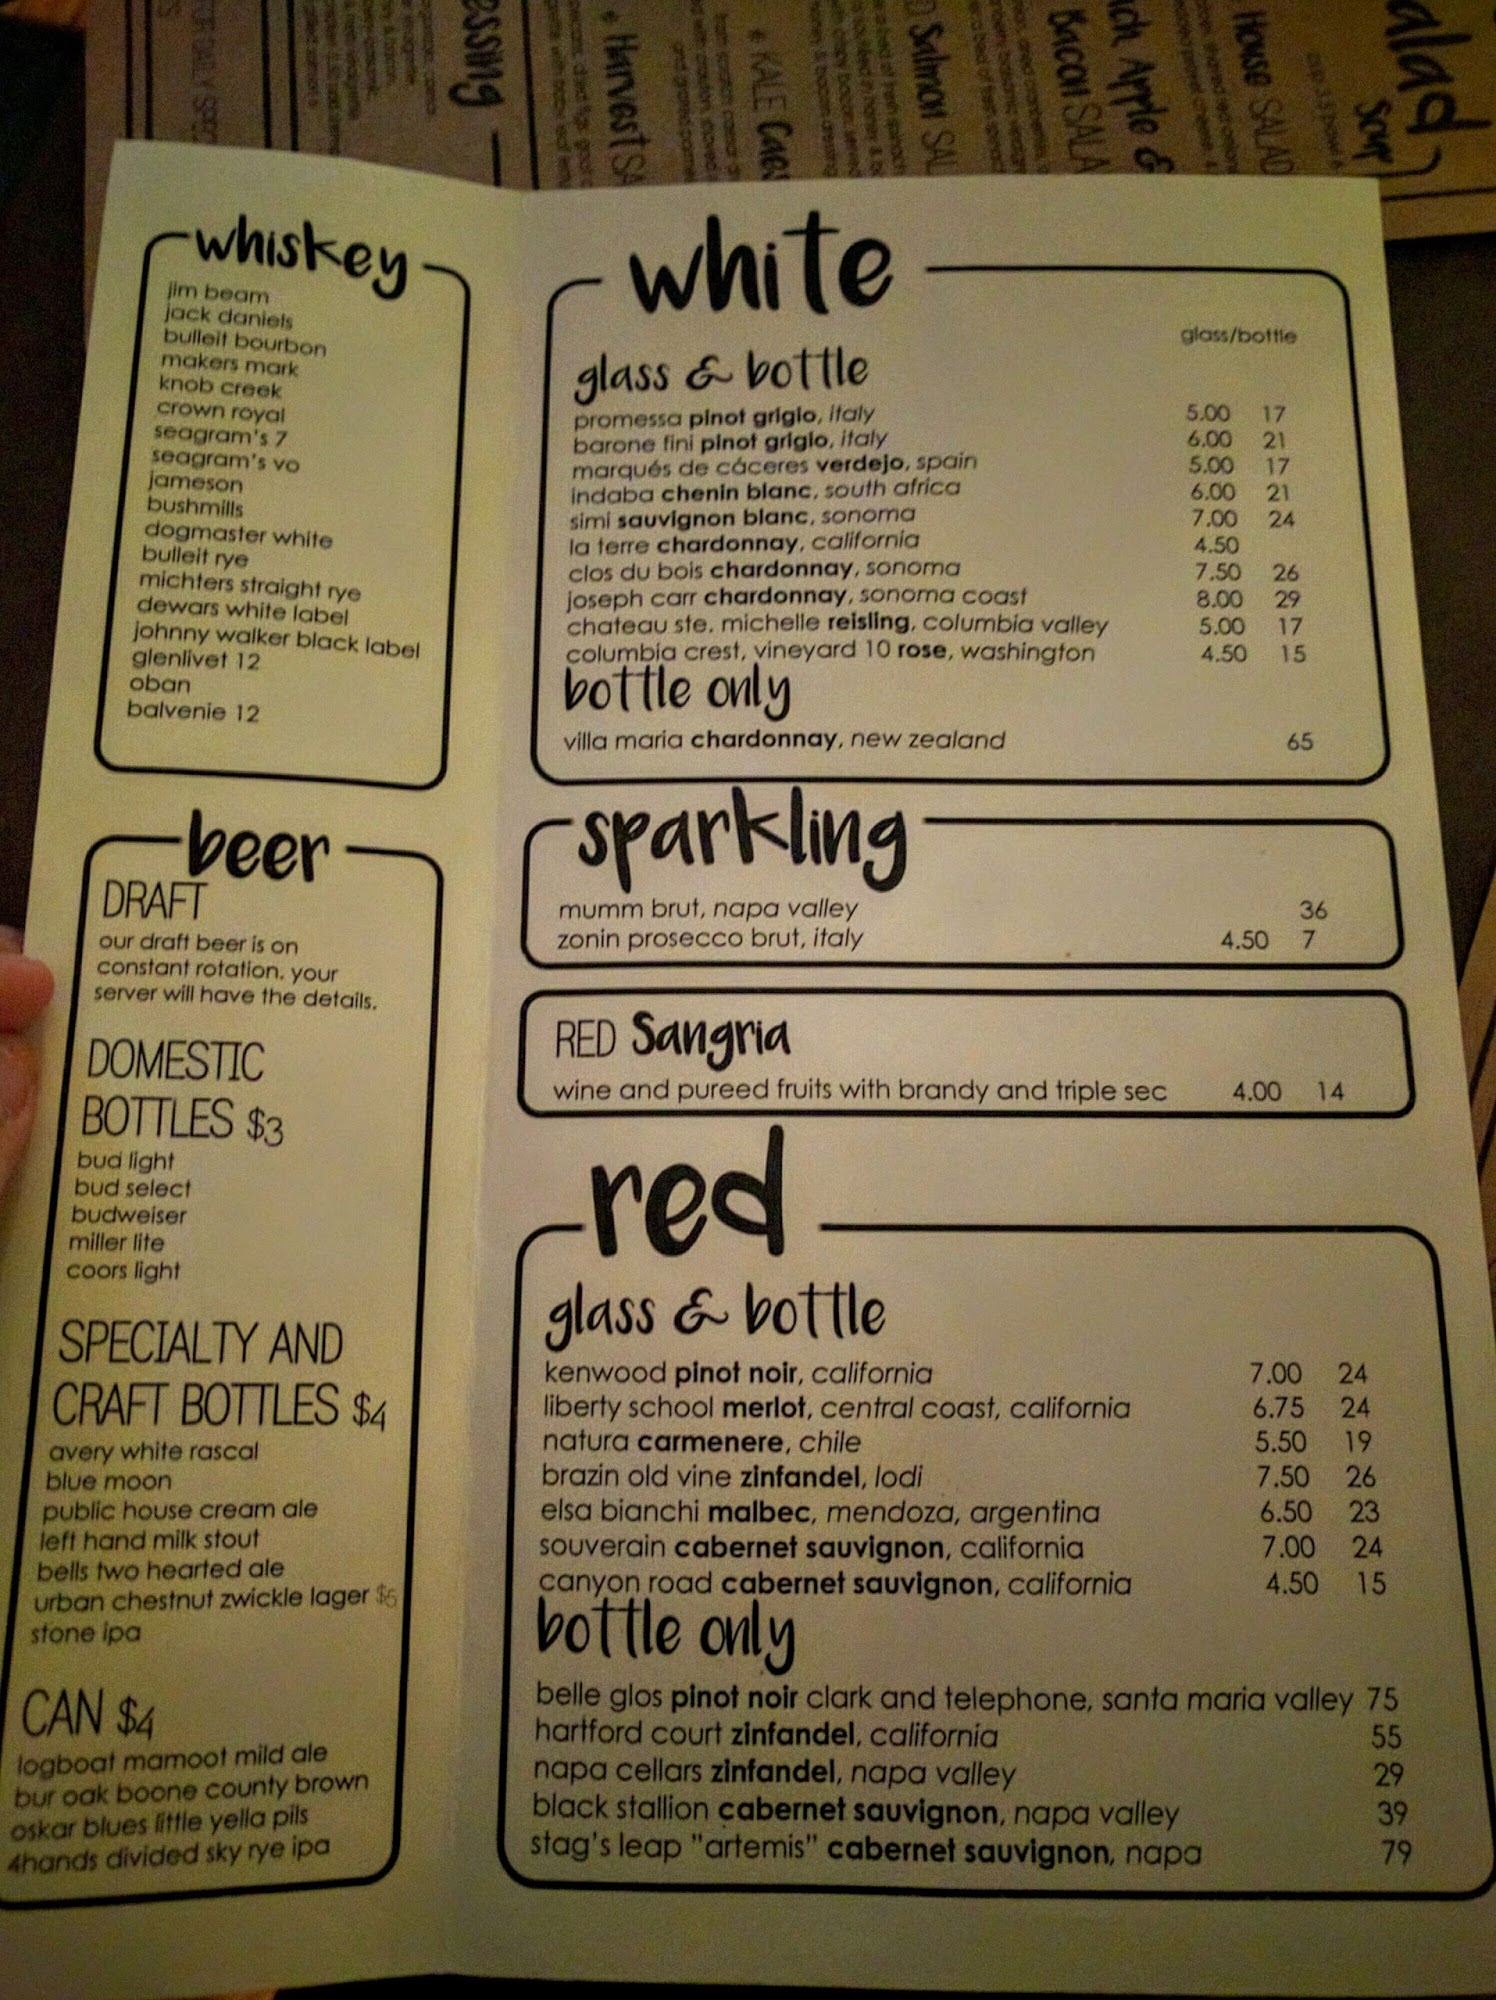 alad
Soup
HOUSE SALAD
ach, Apple &
BACON SALA
Salmon SAL
KALE Caes
Harvest SA
essing
whiskey
jim beam
jack daniels
bulleit bourbon
makers mark
knob creek
crown royal
seagram's 7
seagram's vo
jameson
bushmills
dogmaster white
bulleit rye
michters straight rye
dewars white label
johnny walker black label
glenlivet 12
oban
balvenie 12
beer
DRAFT
our draft beer is on
constant rotation. your
server will have the details.
DOMESTIC
BOTTLES $3
bud light
bud select
budweiser
miller lite
coors light
SPECIALTY AND
CRAFT BOTTLES $4
avery white rascal
blue moon
public house cream ale
left hand milk stout
bells two hearted ale
urban chestnut zwickle lager
stone ipa
CAN $4
logboat mamoot mild ale
bur oak boone county brown
oskar blues little yella pils
4hands divided sky rye ipa
white
glass/bottle
glass & bottle
promessa pinot grigio, italy 5.00 17
barone fini pinot grigio, italy 6.00 21
marqués de cáceres verdejo, spain 5.00 17
indaba chenin blanc, south africa 6.00 21
simi sauvignon blanc, sonoma 7.00 24
la terre chardonnay, california 4.50
clos du bois chardonnay, sonoma 7.50 26
joseph carr chardonnay, sonoma coast 8.00 29
chateau ste. michelle reisling, columbia valley 5.00 17
columbia crest, vineyard 10 rose, washington 4.50 15
bottle only
villa maria chardonnay, new zealand 65
sparkling
mumm brut, napa valley 36
zonin prosecco brut, italy 4.50 7
RED Sangria
wine and pureed fruits with brandy and triple sec 4.00 14
red
glass & bottle
kenwood pinot noir, california 7.00 24
liberty school merlot, central coast, california 6.75 24
natura carmenere, chile 5.50 19
brazin old vine zinfandel, lodi 7.50 26
elsa bianchi malbec, mendoza, argentina 6.50 23
souverain cabernet sauvignon, california 7.00 24
canyon road cabernet sauvignon, california 4.50 15
bottle only
belle glos pinot noir clark and telephone, santa maria valley 75
hartford court zinfandel, california 55
napa cellars zinfandel, napa valley 29
black stallion cabernet sauvignon, napa valley 39
stag's leap "artemis" cabernet sauvignon, napa 79